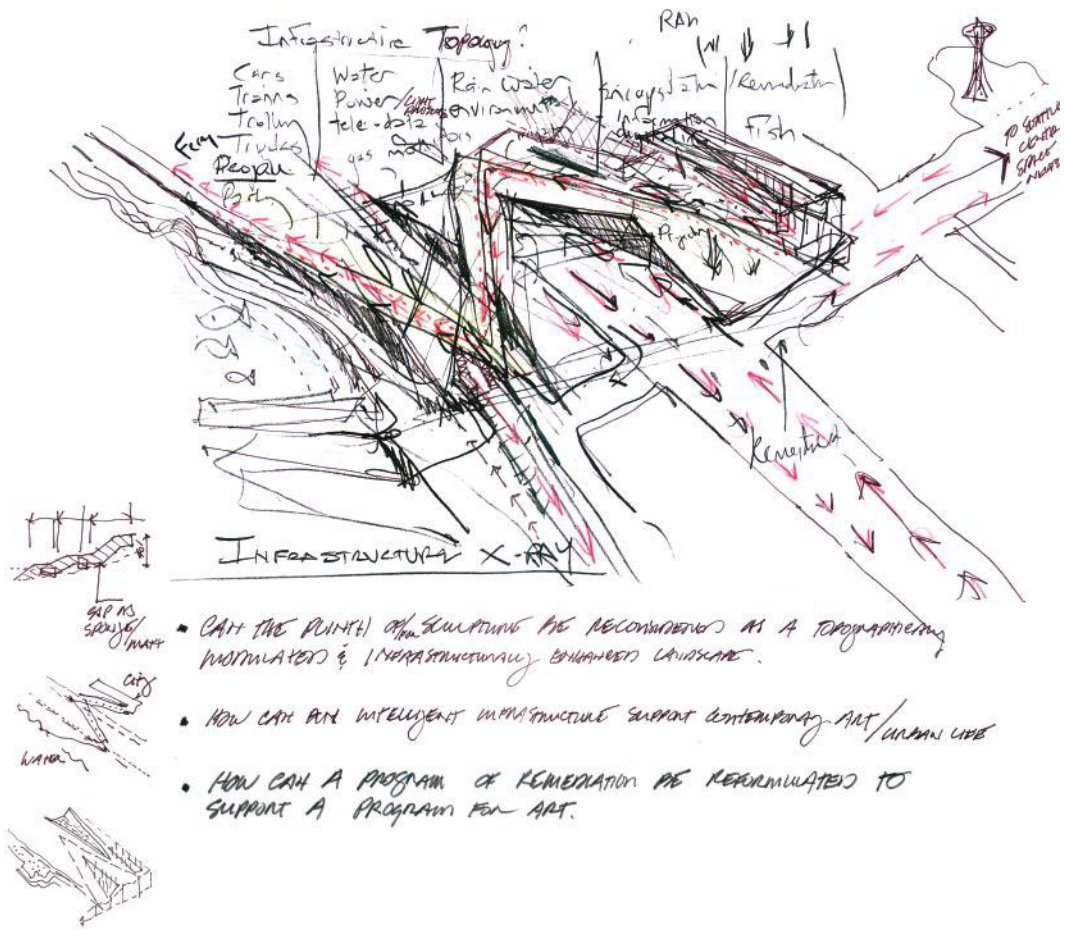 Infrastructure Topology?
RAIN
Cars
Trains
Trolley
Trucks
People
Ferry
Water
Power/LIGHT
tele-data
gas
Rain water
environmental
information
Remediation
Fish
TO SEATTLE
CENTER
SPACE
NEEDLE
Projection
INFRASTRUCTURAL X-RAY
SAP AS
SPONGE/
MATT
• CAN THE PLINTH OF SCULPTURE BE RECONSIDERED AS A TOPOGRAPHICALLY
MODULATED & INFRASTRUCTURALLY ENHANCED LANDSCAPE.
CITY
WATER
• HOW CAN AN INTELLIGENT INFRASTRUCTURE SUPPORT CONTEMPORARY ART/URBAN LIFE
• HOW CAN A PROGRAM OF REMEDIATION BE REFORMULATED TO
SUPPORT A PROGRAM FOR ART.